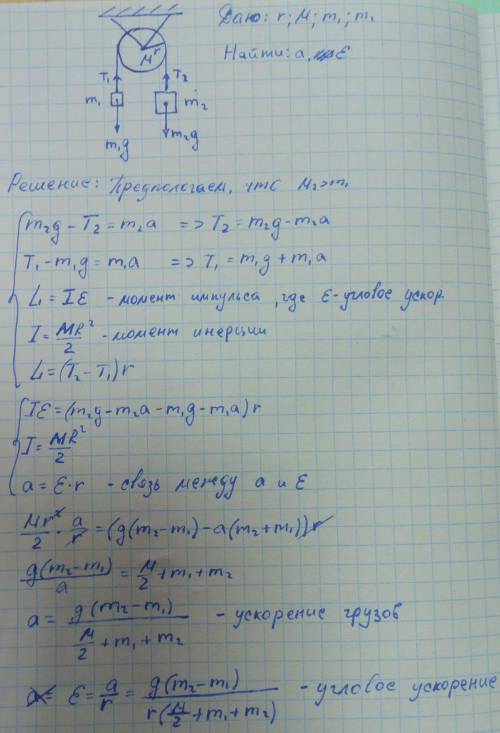 Дано: r; M; m₁; m₁
Найти: a, ε
M r
T₁ T₂
m₁ m₂
m₁g m₂g
Решение: Предполагаем, что M₂>m₁
m₂g - T₂ = m₂a => T₂ = m₂g - m₂a
T₁ - m₁g = m₁a => T₁ = m₁g + m₁a
L = Iε - момент импульса, где ε - угловое ускор.
I = MR²/2 - момент инерции
L = (T₂ - T₁)r
Iε = (m₂g - m₂a - m₁g - m₁a)r
I = MR²/2
a = ε·r - связь между a и ε
Mr²/2 · a/r = (g(m₂-m₁) - a(m₂+m₁))r
g(m₂-m₁)/a = M/2 + m₁ + m₂
a = g(m₂-m₁)/(M/2 + m₁ + m₂) - ускорение грузов
a = ε = a/r = g(m₂-m₁)/(r(M/2 + m₁ + m₂)) - угловое ускорение